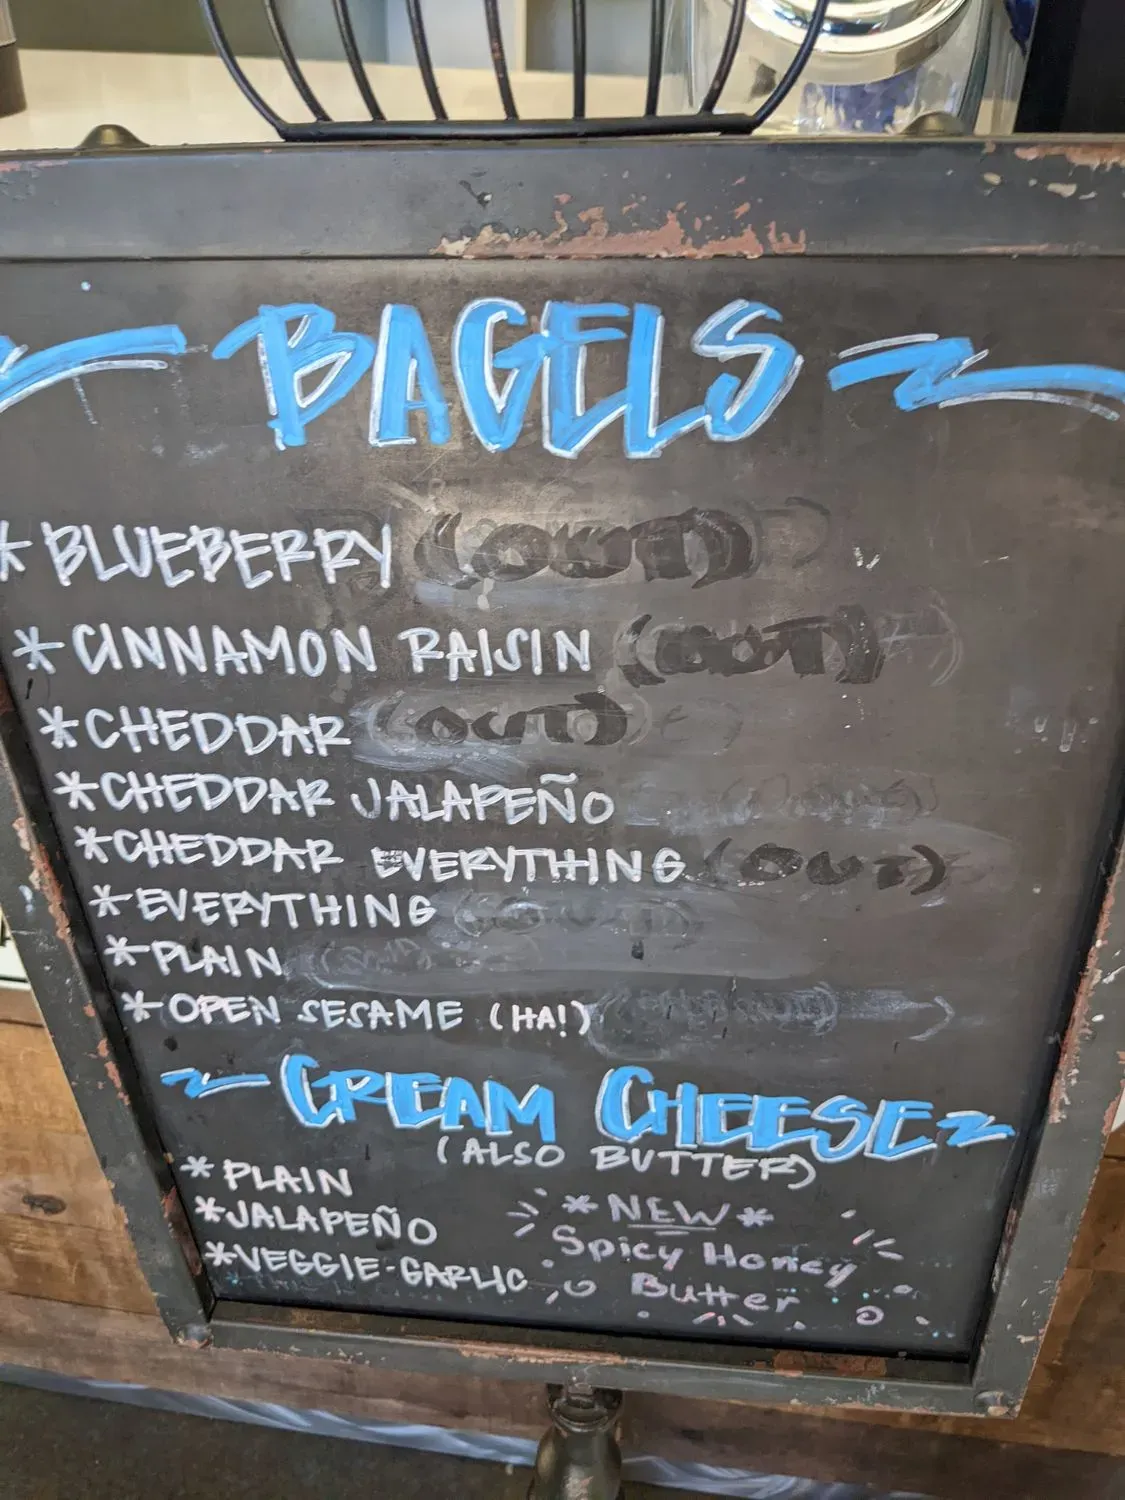 BAGELS
*BLUEBERRY (OUT)
*CINNAMON RAISIN (OUT)
*CHEDDAR (OUT)
*CHEDDAR JALAPEÑO
*CHEDDAR EVERYTHING (OUT)
*EVERYTHING
*PLAIN
*OPEN SESAME (HA!)
CREAM CHEESE
(ALSO BUTTER)
*PLAIN
*JALAPEÑO
*VEGGIE-GARLIC
*NEW*
Spicy Honey
Butter